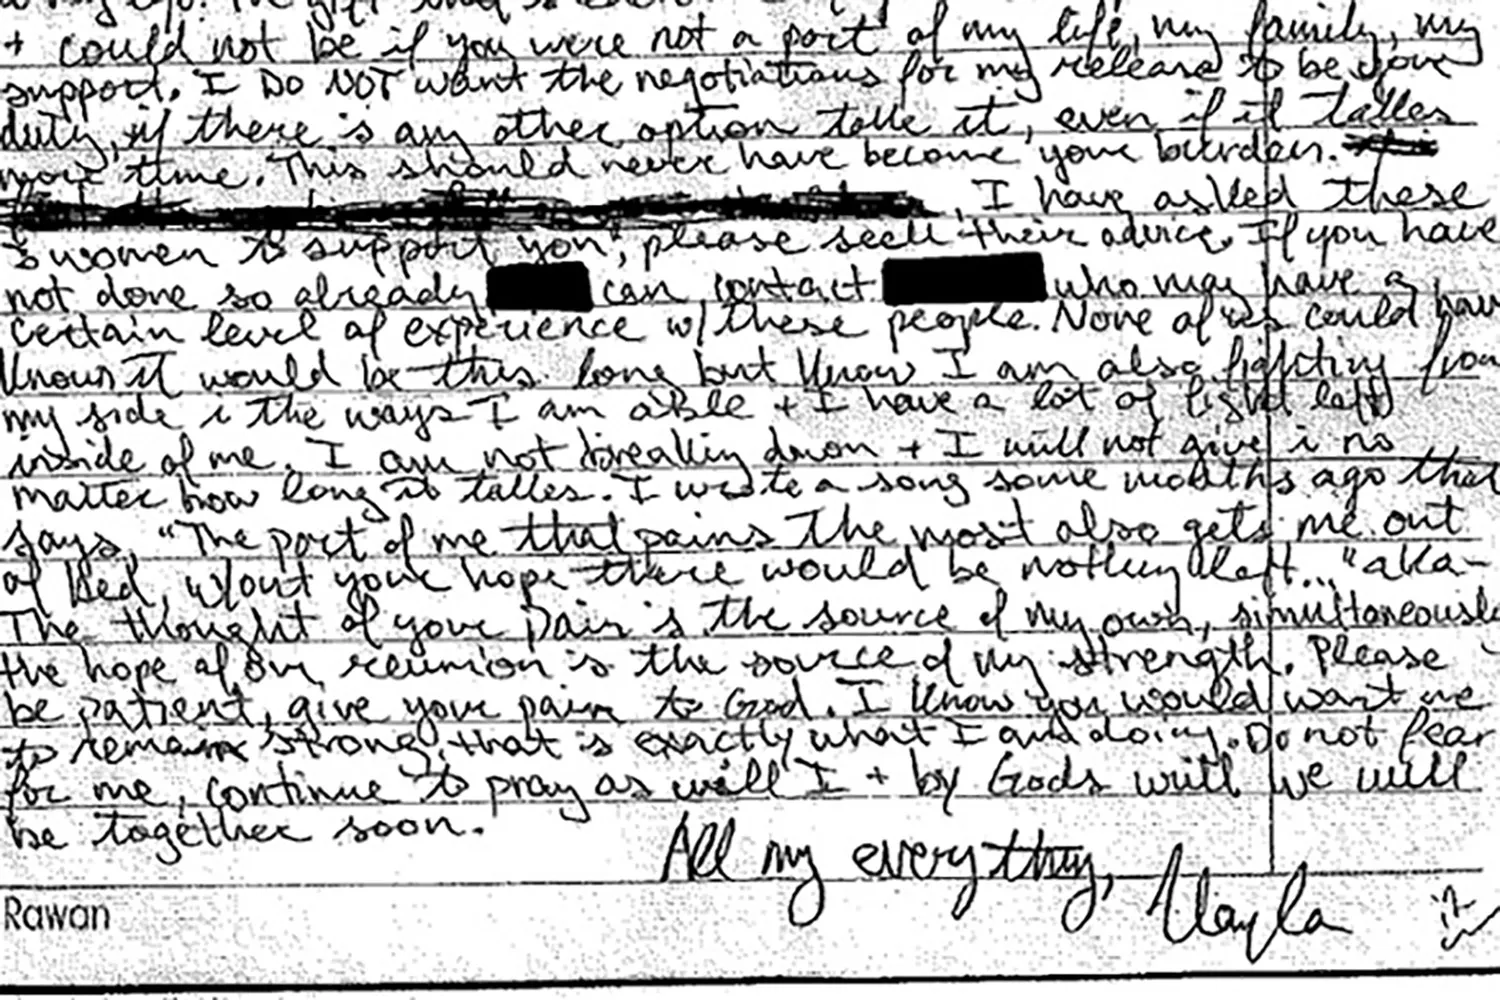 + could not be if you were not a part of my life, my family, my
support. I DO NOT want the negotiations for my release to be your
duty, if there is any other option take it, even if it takes
more time. This should never have become your burden.
, I have asked these
women to support you; please seek their advice. If you have
not done so already can contact who may have a
certain level of experience w/ these people. None of us could have
known it would be this long but know I am also fighting from
my side i the ways I am able + I have a lot of fight left
inside of me. I am not breaking down + I will not give i no
matter how long it takes. I wrote a song some months ago that
says, "The part of me that pains the most also gets me out
of bed, w/out your hope there would be nothing left..." aka-
The thought of your pain is the source of my own, simultaneously
the hope of our reunion is the source of my strength. Please
be patient, give your pain to God. I know you would want me
to remain strong, that is exactly what I am doing. Do not fear
for me, continue to pray as will I + by Gods will we will
be together soon.
All my everything,
Kayla
Rawan